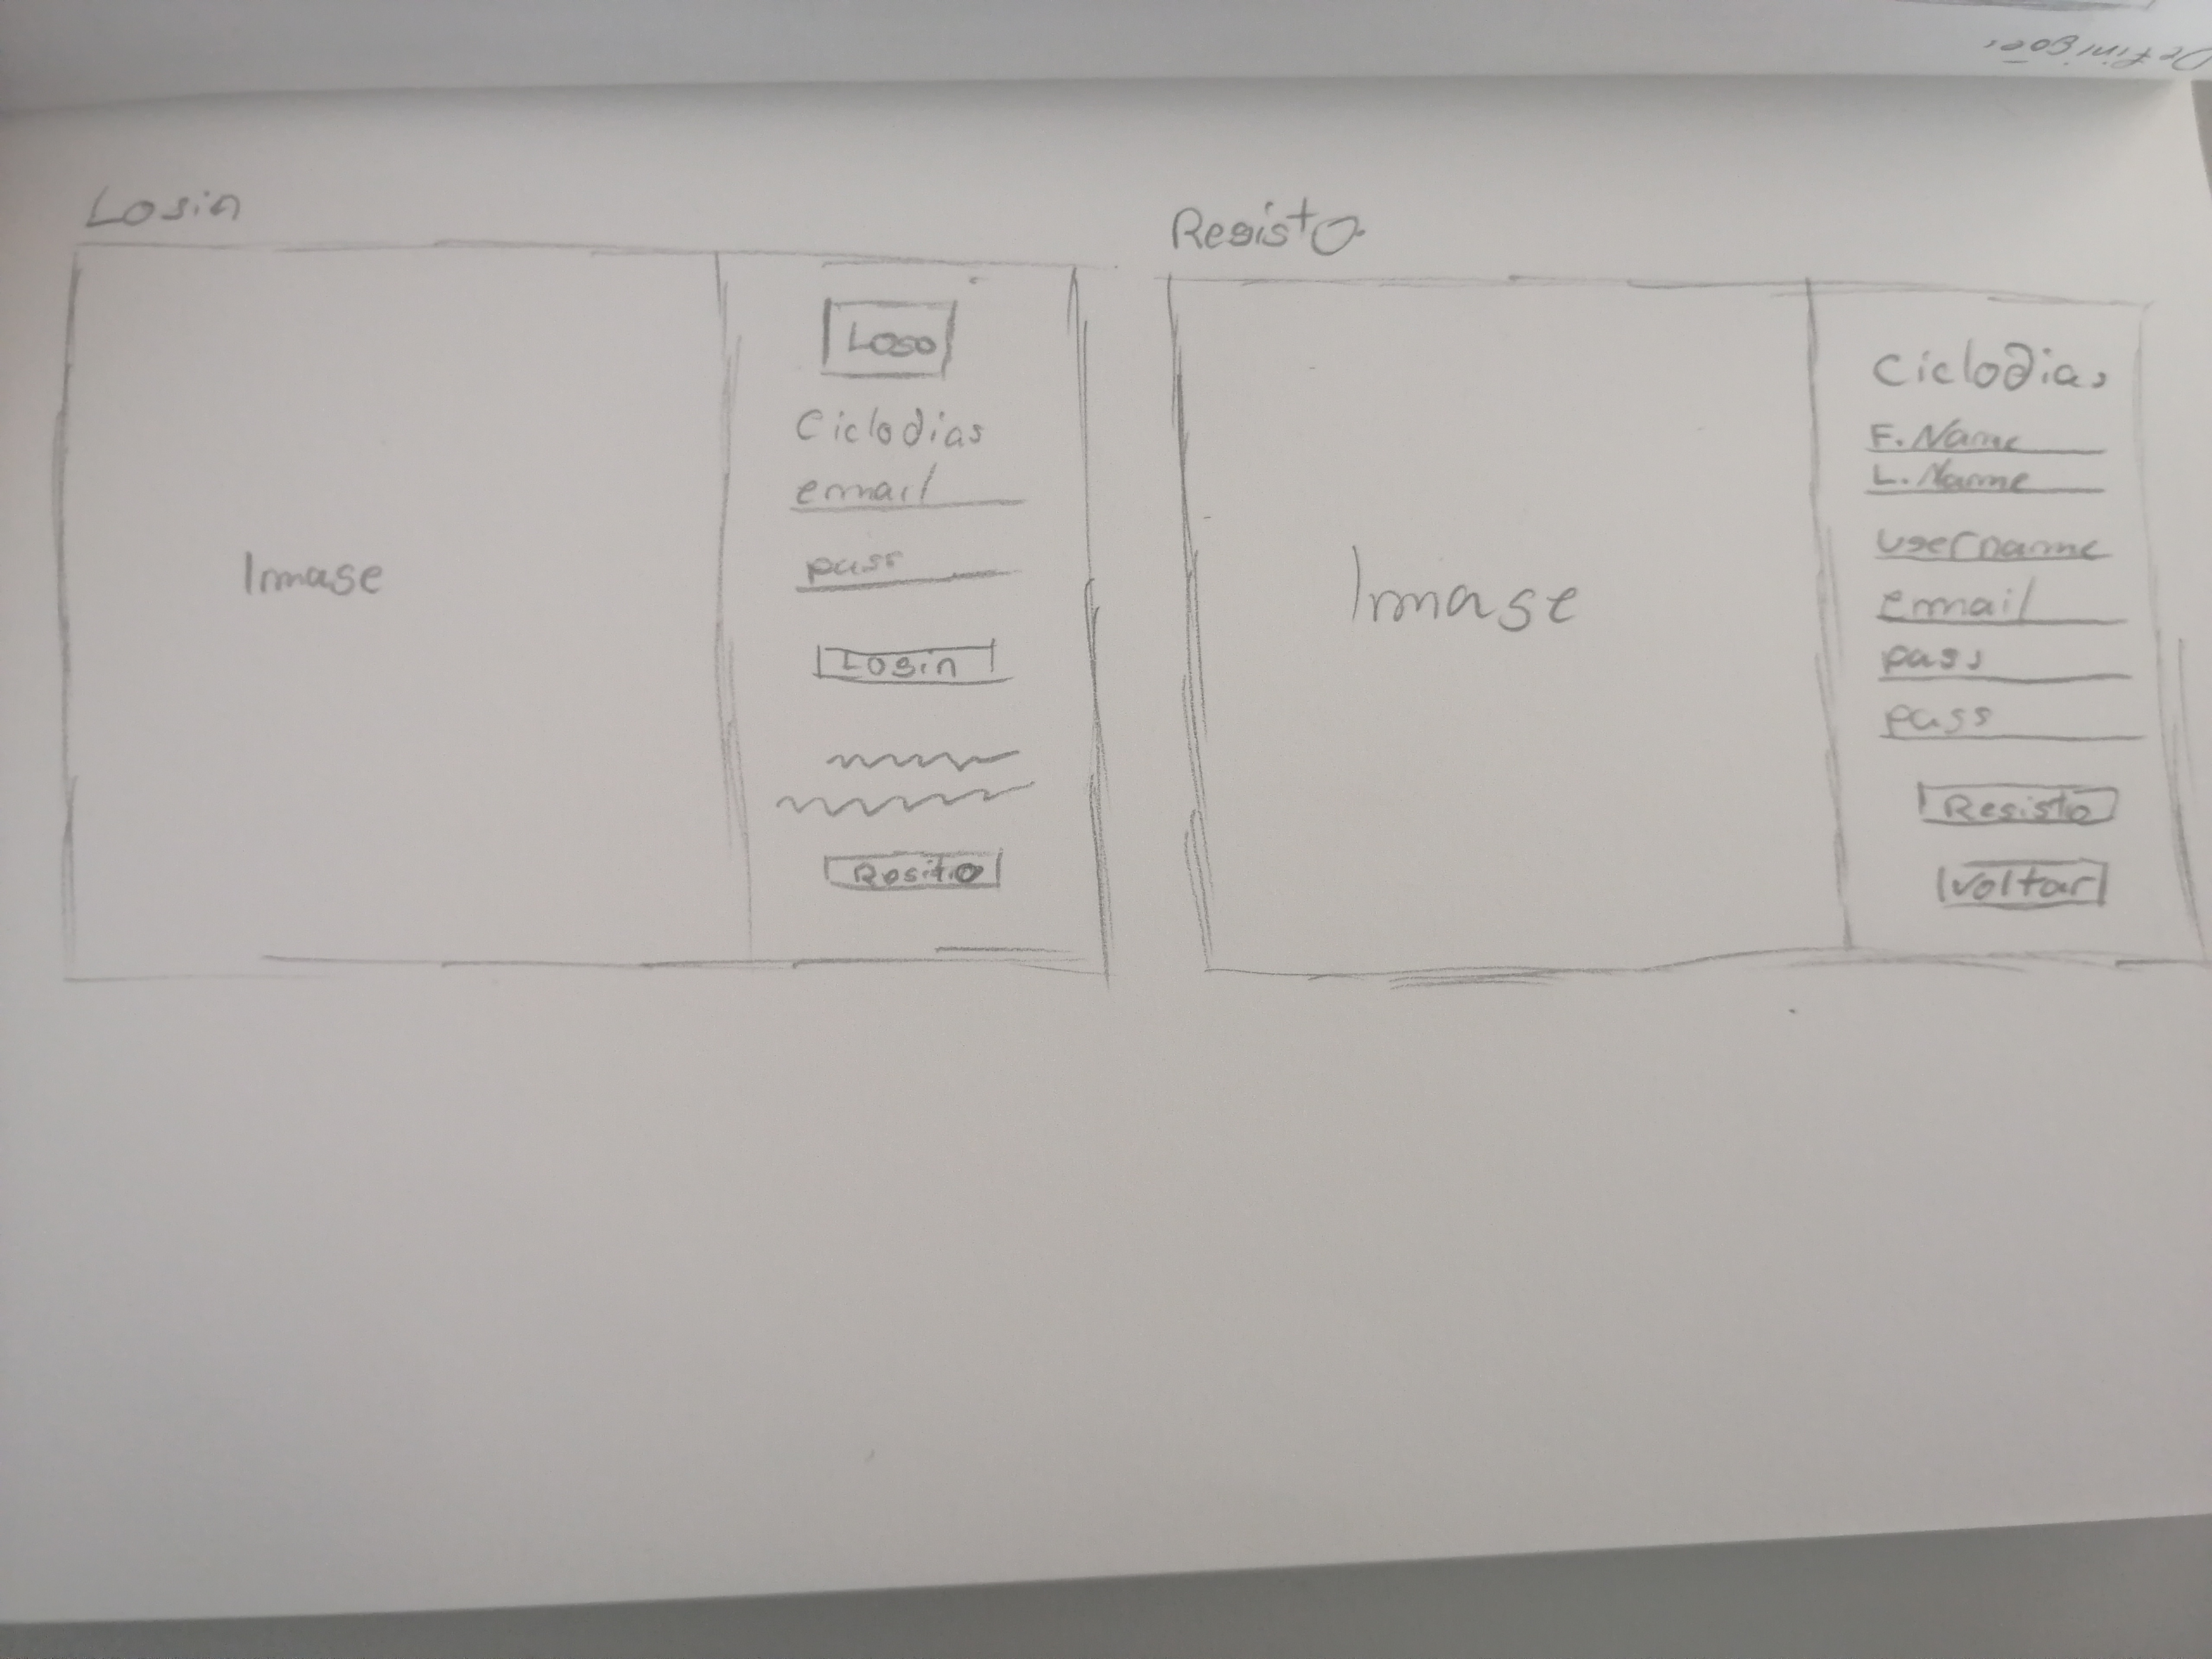 Definições
Login
Image
Logo
Ciclodias
email
pass
Login
Registo
Registo
Image
Ciclodias
F. Name
L. Name
username
email
pass
pass
Registo
Voltar